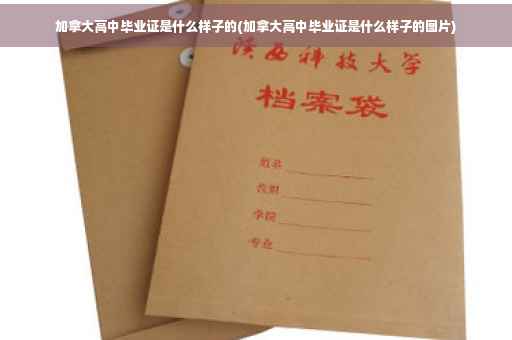 加拿大高中毕业证是什么样子的(加拿大高中毕业证是什么样子的图片)
陕西科技大学
档案袋
姓名
学院
专业